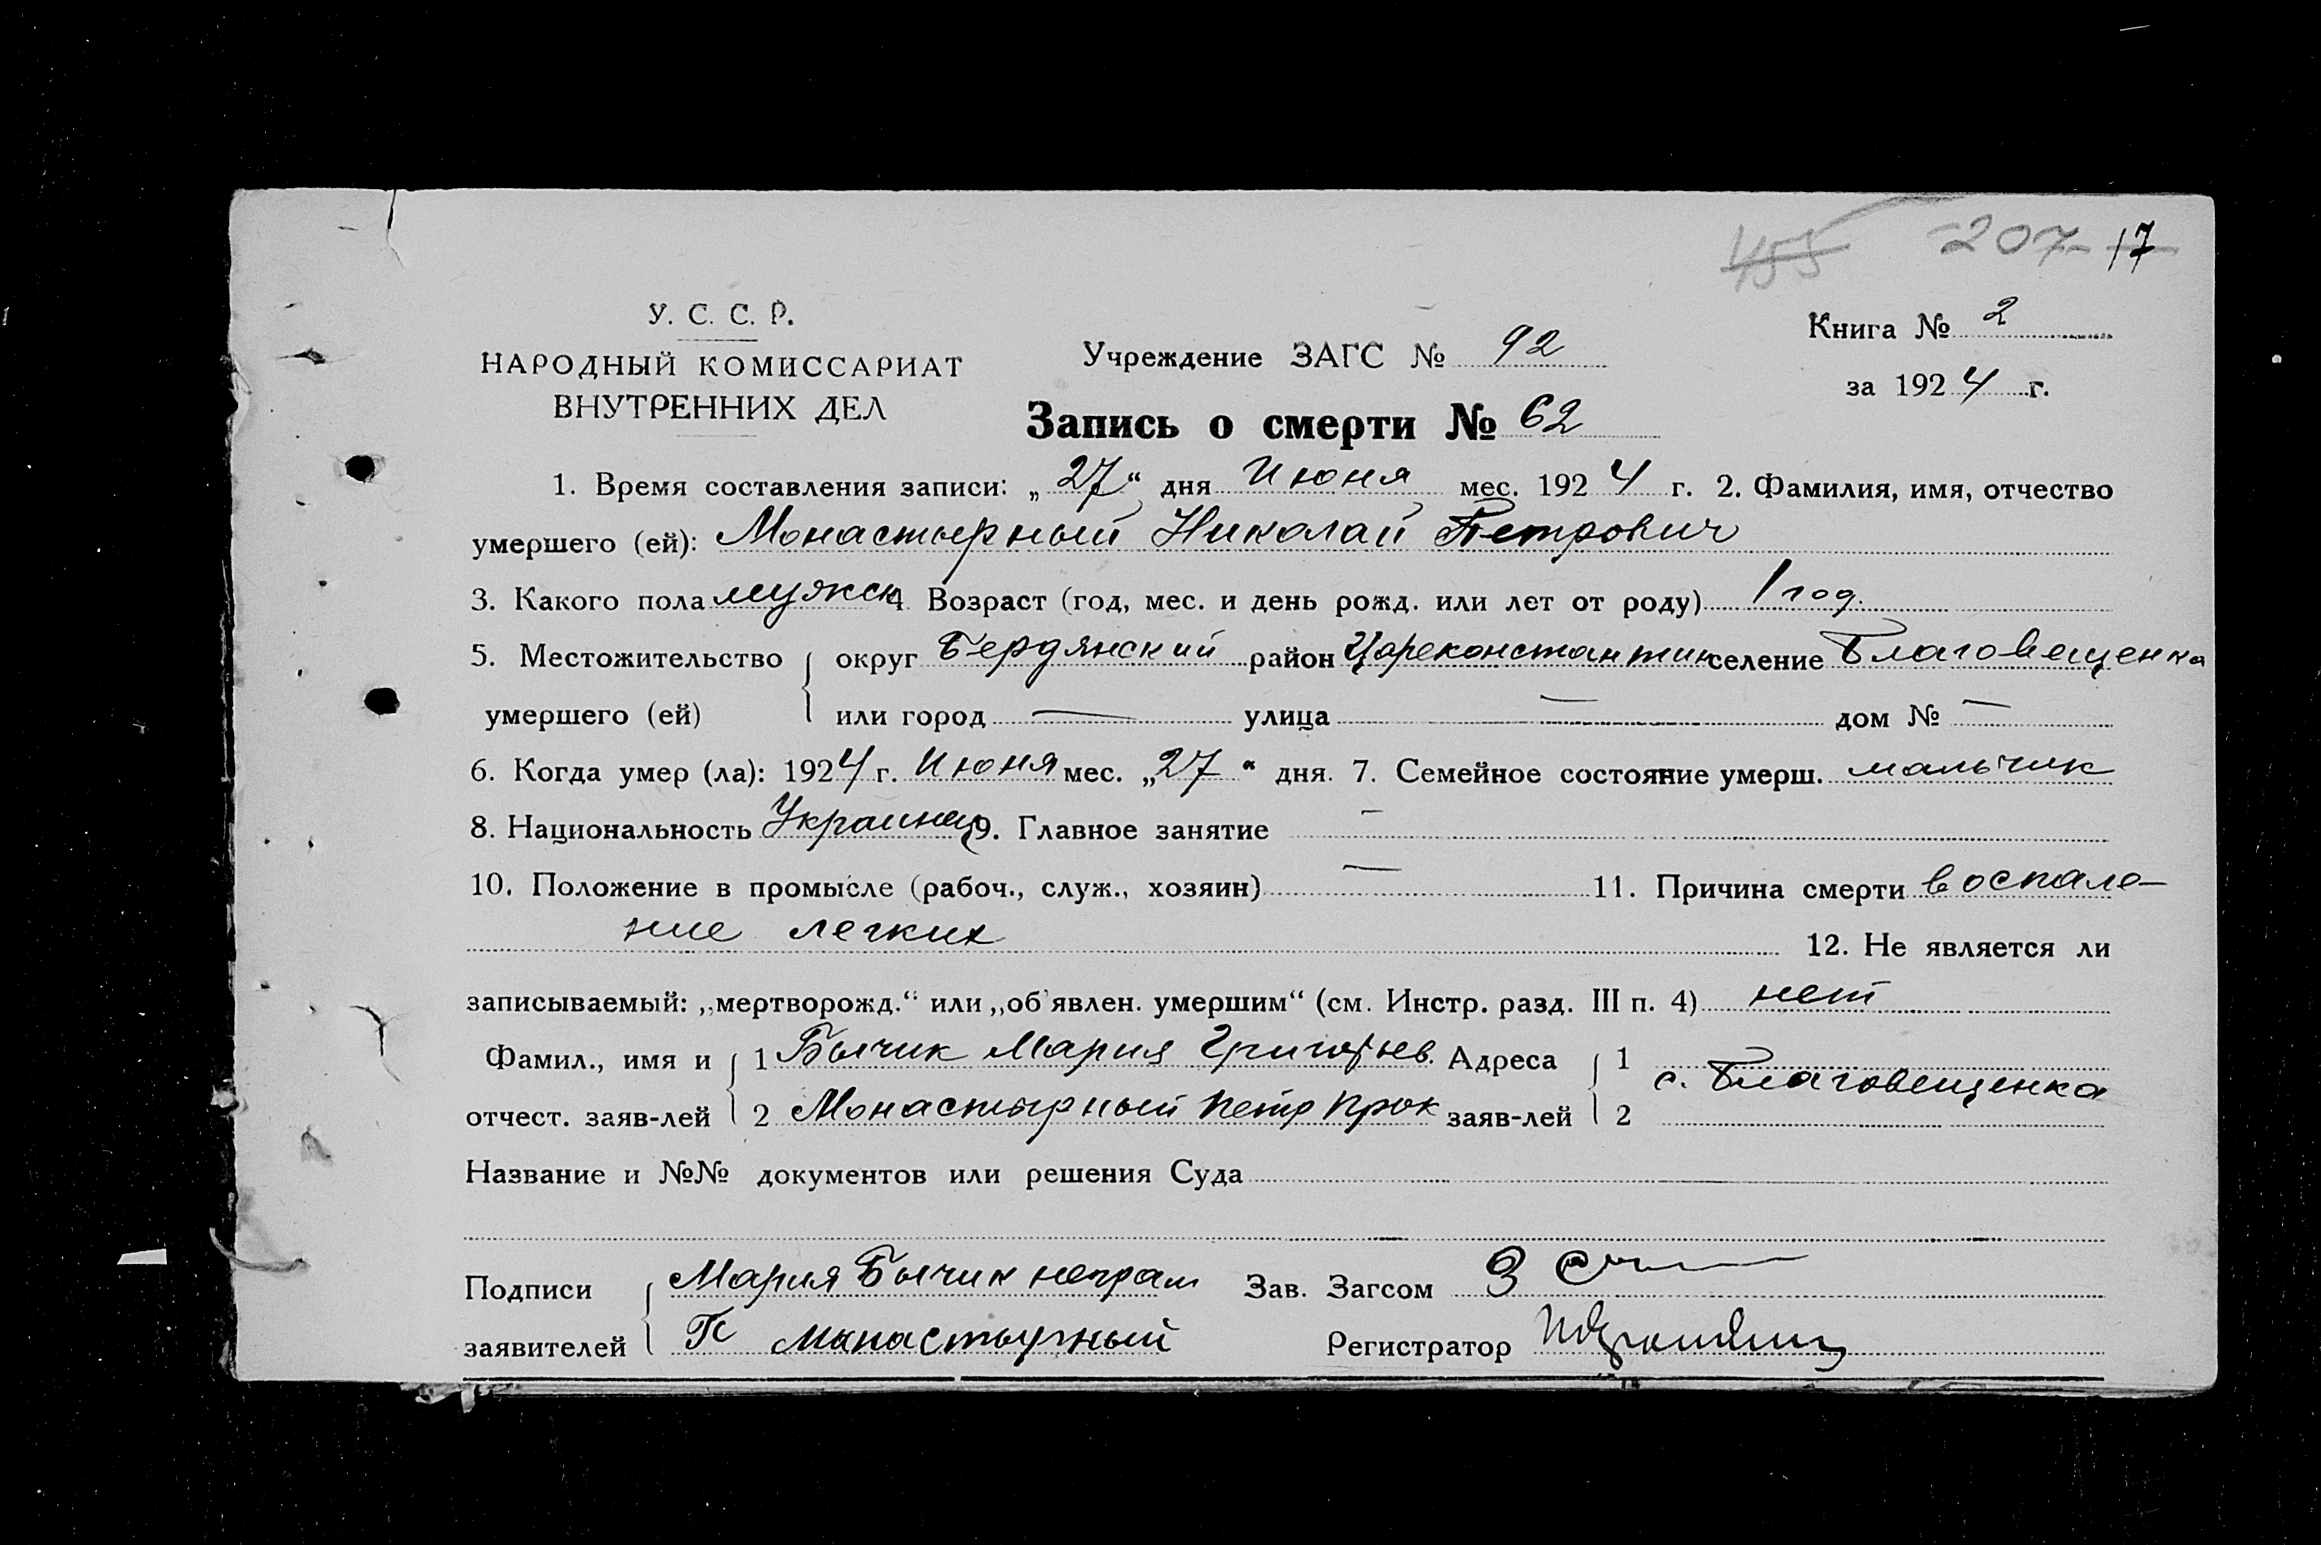 455 207 17
У. С. С. Р.
НАРОДНЫЙ КОМИССАРИАТ
ВНУТРЕННИХ ДЕЛ
Учреждение ЗАГС № 92
Книга № 2
за 1924 г.
Запись о смерти № 62
1. Время составления записи: „27“ дня Июня мес. 1924 г. 2. Фамилия, имя, отчество
умершего (ей): Монастырный Николай Петрович
3. Какого пола мужск 4 Возраст (год, мес. и день рожд. или лет от роду) 1 год.
5. Местожительство округ Бердянский район Цареконстантин селение Благовещенка
умершего (ей) или город — улица — дом № —
6. Когда умер (ла): 1924 г. Июня мес. „27“ дня. 7. Семейное состояние умерш. мальчик
8. Национальность Украинец 9. Главное занятие —
10. Положение в промысле (рабоч., служ., хозяин) — 11. Причина смерти воспале-
ние легких 12. Не является ли
записываемый: „мертворожд.“ или „об'явлен. умершим“ (см. Инстр. разд. III п. 4) нет
Фамил., имя и 1 Бычик Мария Григорьев. Адреса 1 с. Благовещенка
отчест. заяв-лей 2 Монастырный Петр Прок заяв-лей 2
Название и №№ документов или решения Суда
Подписи Мария Бычик неграм Зав. Загсом
заявителей П Манастырный Регистратор